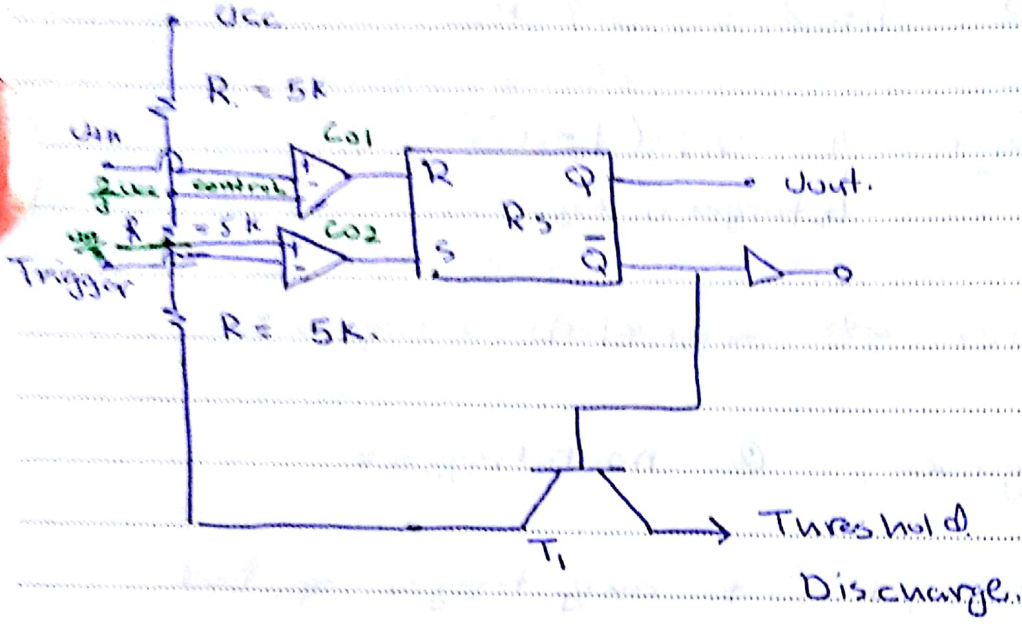 Vcc
R = 5k
Vin
CO1
+
-
2/3 Vcc control
R = 5k
CO2
+
-
Trigger
R = 5k.
R
S
Rs
Q
Q̅
Vout.
T1
Threshold
Discharge.